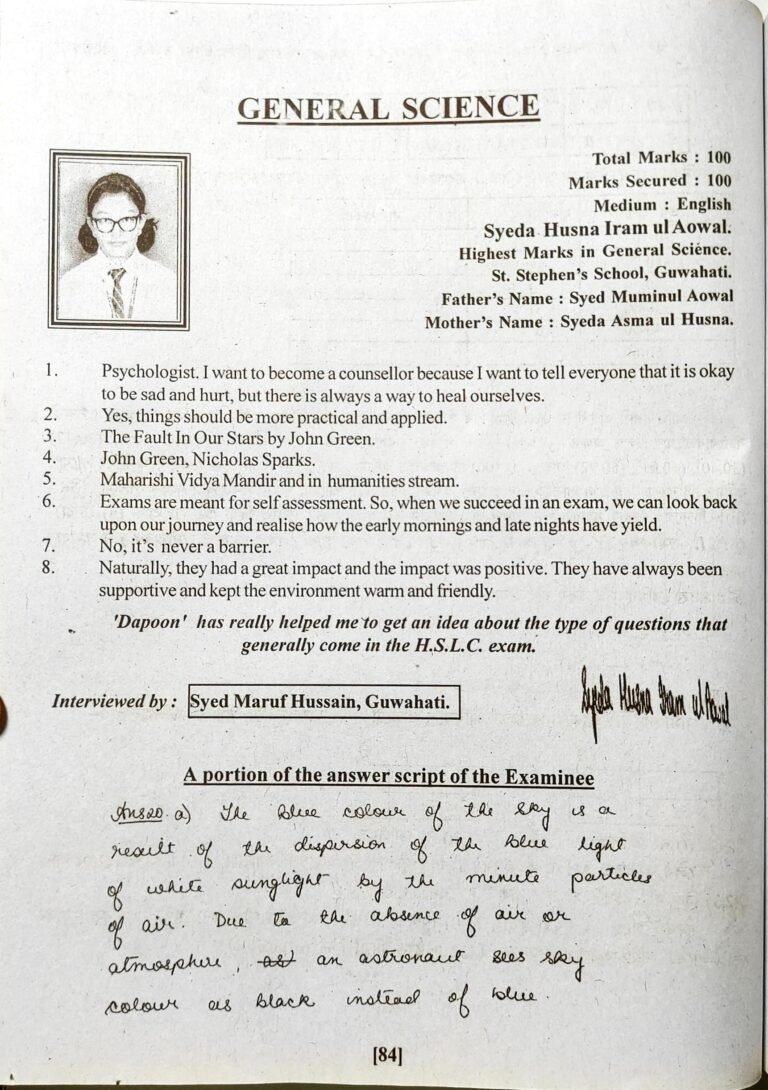 GENERAL SCIENCE
Total Marks : 100
Marks Secured : 100
Medium : English
Syeda Husna Iram ul Aowal.
Highest Marks in General Science.
St. Stephen's School, Guwahati.
Father's Name : Syed Muminul Aowal
Mother's Name : Syeda Asma ul Husna.
1. Psychologist. I want to become a counsellor because I want to tell everyone that it is okay
to be sad and hurt, but there is always a way to heal ourselves.
2. Yes, things should be more practical and applied.
3. The Fault In Our Stars by John Green.
4. John Green, Nicholas Sparks.
5. Maharishi Vidya Mandir and in humanities stream.
6. Exams are meant for self assessment. So, when we succeed in an exam, we can look back
upon our journey and realise how the early mornings and late nights have yield.
7. No, it's never a barrier.
8. Naturally, they had a great impact and the impact was positive. They have always been
supportive and kept the environment warm and friendly.
'Dapoon' has really helped me to get an idea about the type of questions that
generally come in the H.S.L.C. exam.
Interviewed by : Syed Maruf Hussain, Guwahati.
Syeda Husna Iram ul Aowal
A portion of the answer script of the Examinee
Ans20. a) The blue colour of the sky is a
result of the dispersion of the blue light
of white sunglight by the minute particles
of air. Due to the absence of air or
atmosphere, as an astronaut sees sky
colour as black instead of blue.
[84]